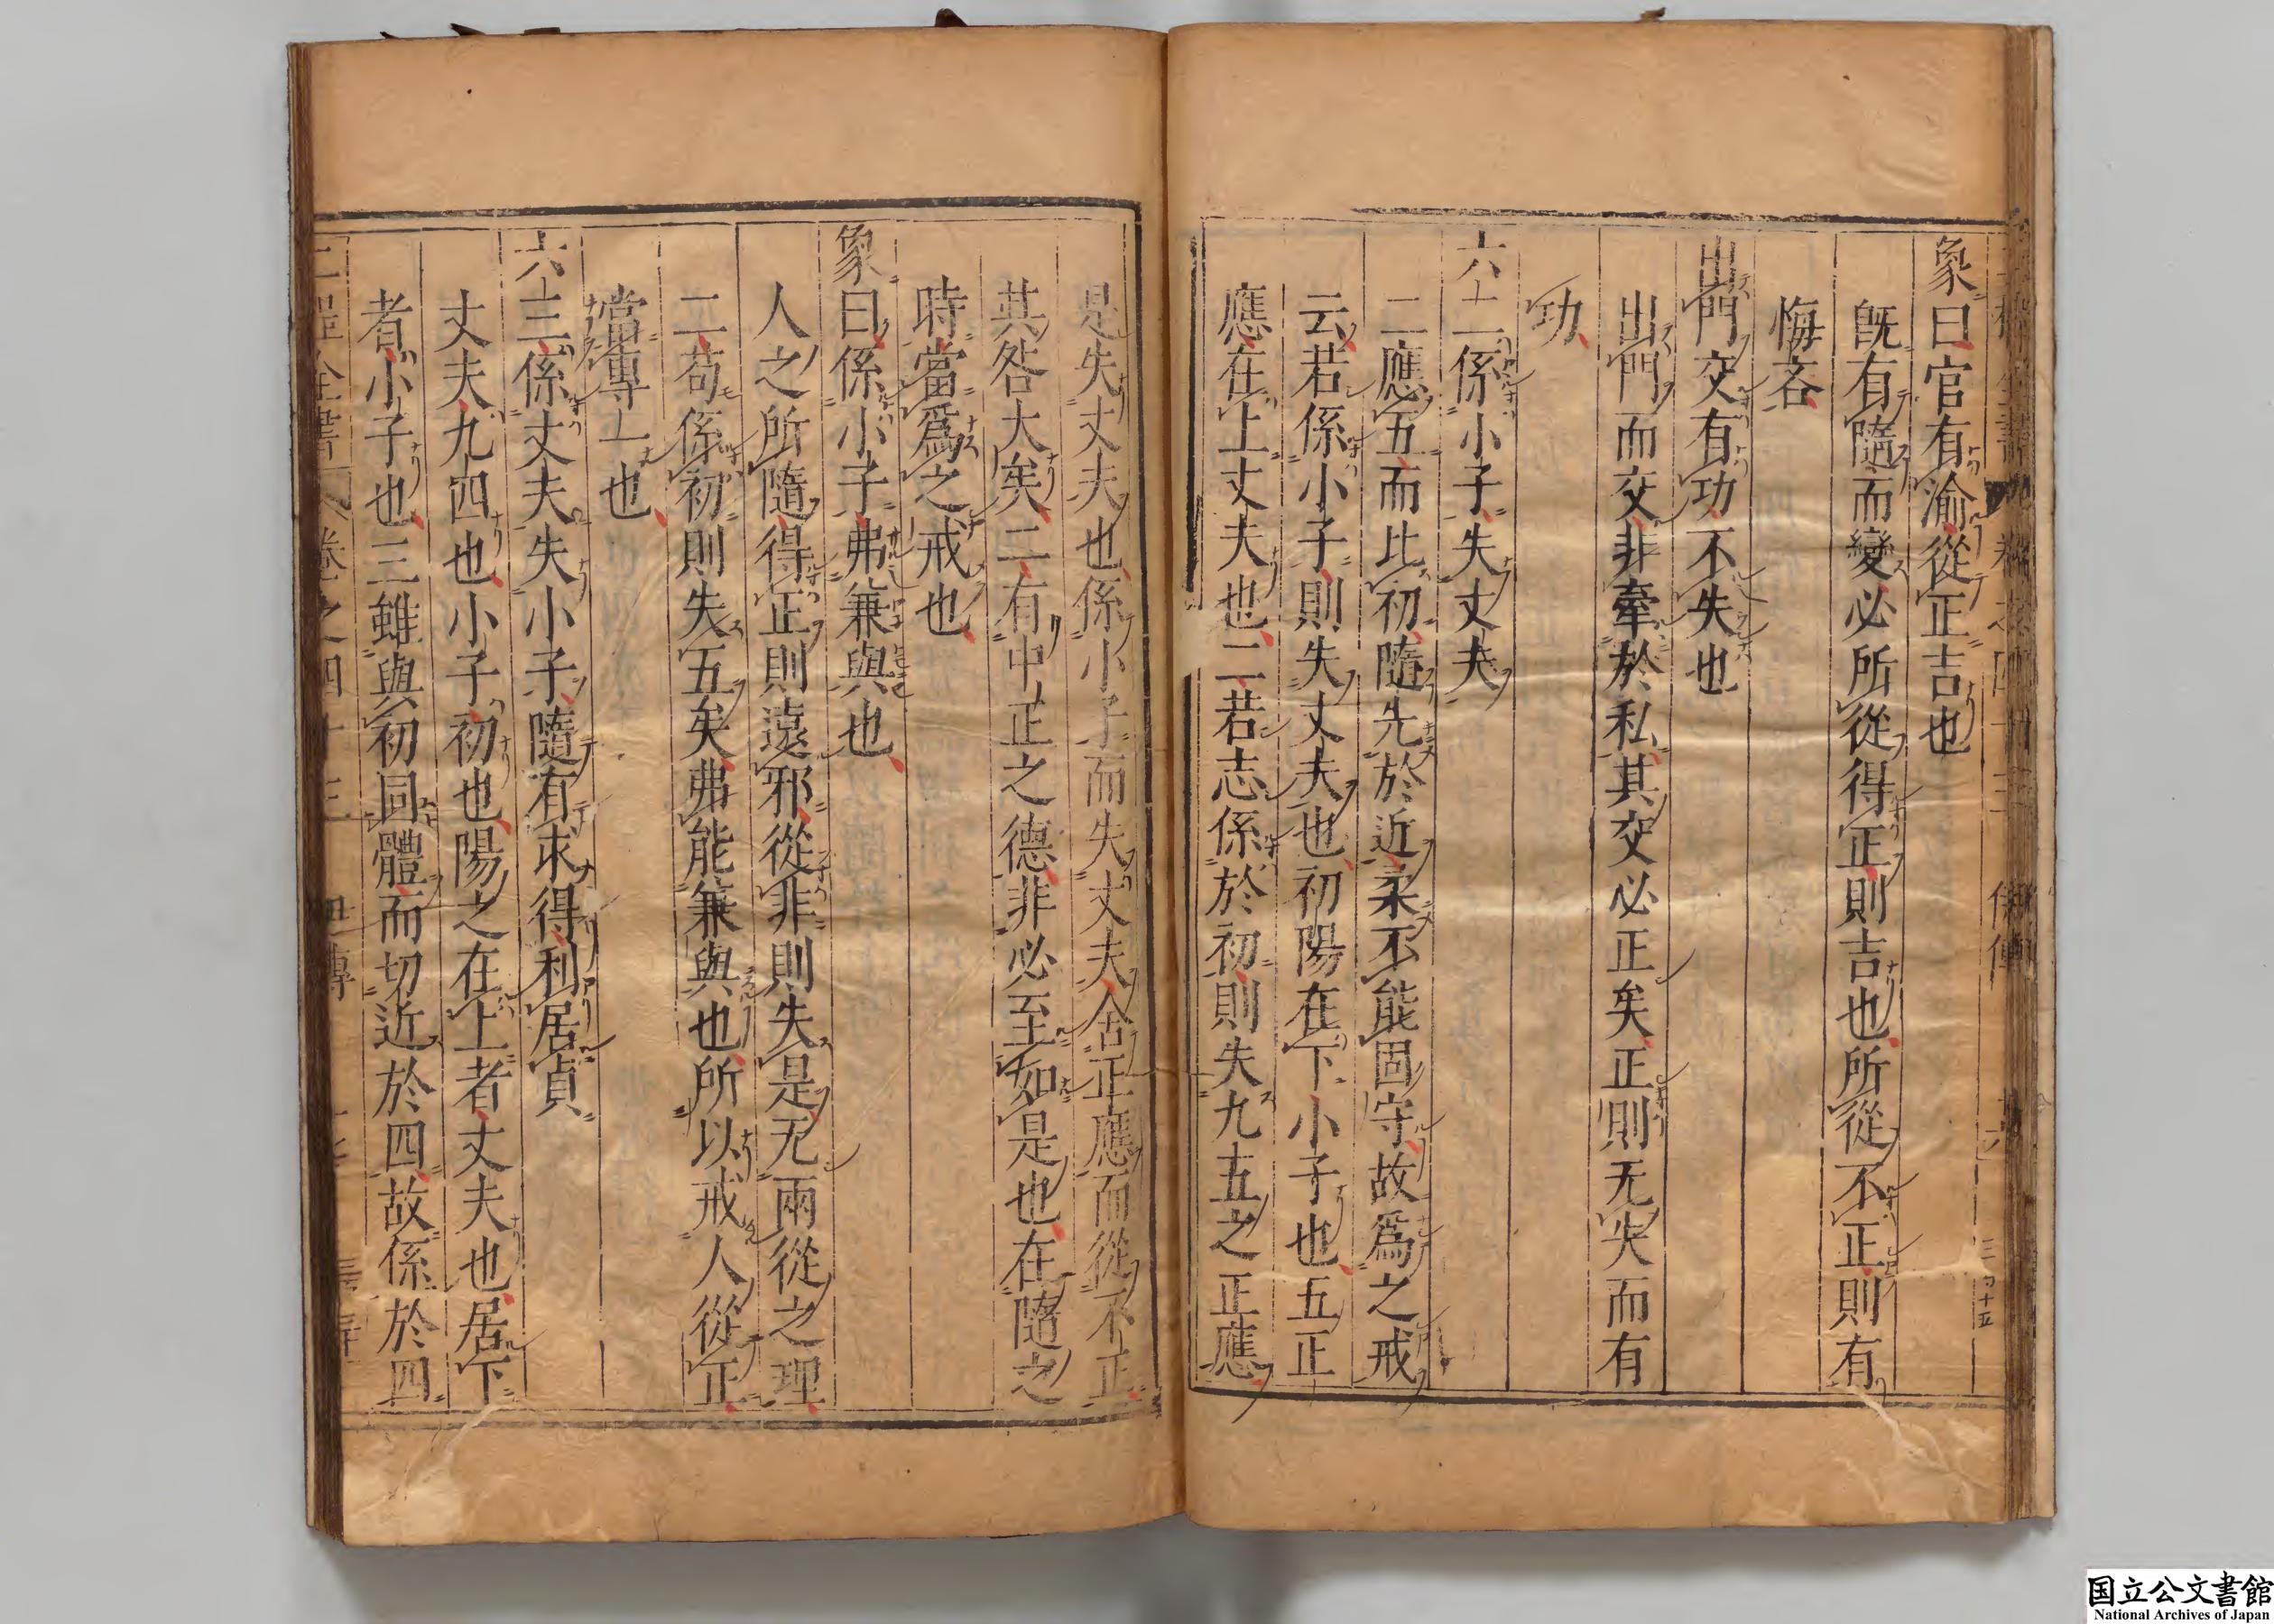 象曰官有渝從正吉也
既有隨而變必所從得正則吉也所從不正則有
悔吝
出門交有功不失也
出門而交非牽於私其交必正矣正則无失而有
功
六二係小子失丈夫
二應五而比初隨先於近柔不能固守故爲之戒
云若係小子則失丈夫也初陽在下小子也五正
應在上丈夫也二若志係於初則失九五之正應
是失丈夫也係小子而失丈夫舍正應而從不正
其咎大矣二有中正之德非必至如是也在隨之
時當爲之戒也
象曰係小子弗兼與也
人之所隨得正則遠邪從非則失是无兩從之理
二苟係初則失五矣弗能兼與也所以戒人從正
當專一也
六三係丈夫失小子隨有求得利居貞
丈夫九四也小子初也陽之在上者丈夫也居下
者小子也三雖與初同體而切近於四故係於四
二程全書 卷之四十三
国立公文書館
National Archives of Japan